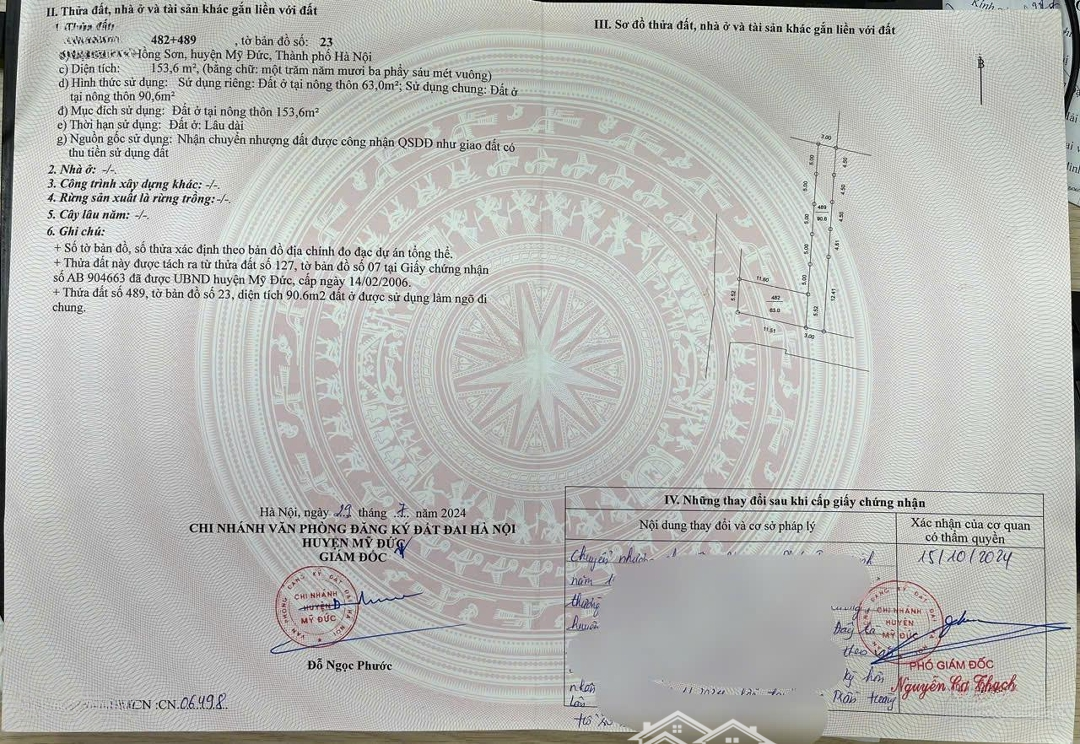 II. Thửa đất, nhà ở và tài sản khác gắn liền với đất
1. Thửa đất
482+489 , tờ bản đồ số: 23
Hồng Sơn, huyện Mỹ Đức, Thành phố Hà Nội
c) Diện tích: 153,6 m², (bằng chữ: một trăm năm mươi ba phẩy sáu mét vuông)
d) Hình thức sử dụng: Sử dụng riêng: Đất ở tại nông thôn 63,0m²; Sử dụng chung: Đất ở
tại nông thôn 90,6m²
đ) Mục đích sử dụng: Đất ở tại nông thôn 153,6m²
e) Thời hạn sử dụng: Đất ở: Lâu dài
g) Nguồn gốc sử dụng: Nhận chuyển nhượng đất được công nhận QSDĐ như giao đất có
thu tiền sử dụng đất
2. Nhà ở: -/-.
3. Công trình xây dựng khác: -/-.
4. Rừng sản xuất là rừng trồng: -/-.
5. Cây lâu năm: -/-.
6. Ghi chú:
+ Số tờ bản đồ, số thửa xác định theo bản đồ địa chính đo đạc dự án tổng thể.
+ Thửa đất này được tách ra từ thửa đất số 127, tờ bản đồ số 07 tại Giấy chứng nhận
số AB 904663 đã được UBND huyện Mỹ Đức, cấp ngày 14/02/2006.
+ Thửa đất số 489, tờ bản đồ số 23, diện tích 90.6m2 đất ở được sử dụng làm ngõ đi
chung.
Hà Nội, ngày 29 tháng 7 năm 2024
CHI NHÁNH VĂN PHÒNG ĐĂNG KÝ ĐẤT ĐAI HÀ NỘI
HUYỆN MỸ ĐỨC
GIÁM ĐỐC
VĂN PHÒNG ĐĂNG KÝ ĐẤT ĐAI HÀ NỘI
CHI NHÁNH
HUYỆN
MỸ ĐỨC
Đỗ Ngọc Phước
CN :CN.06498.
III. Sơ đồ thửa đất, nhà ở và tài sản khác gắn liền với đất
B
3.00
5.00
4.50
5.00
4.50
489
90.6
5.00
4.50
5.00
4.61
11.60
5.00
5.52
482
63.0
5.52
12.41
11.51
3.00
IV. Những thay đổi sau khi cấp giấy chứng nhận
Nội dung thay đổi và cơ sở pháp lý
Xác nhận của cơ quan
có thẩm quyền
Chuyển
15/10/2024
năm
thường
CHI NHÁNH
HUYỆN
MỸ ĐỨC
theo
PHÓ GIÁM ĐỐC
ký hôn
Nguyễn Bá Thạch
nhân
Trần